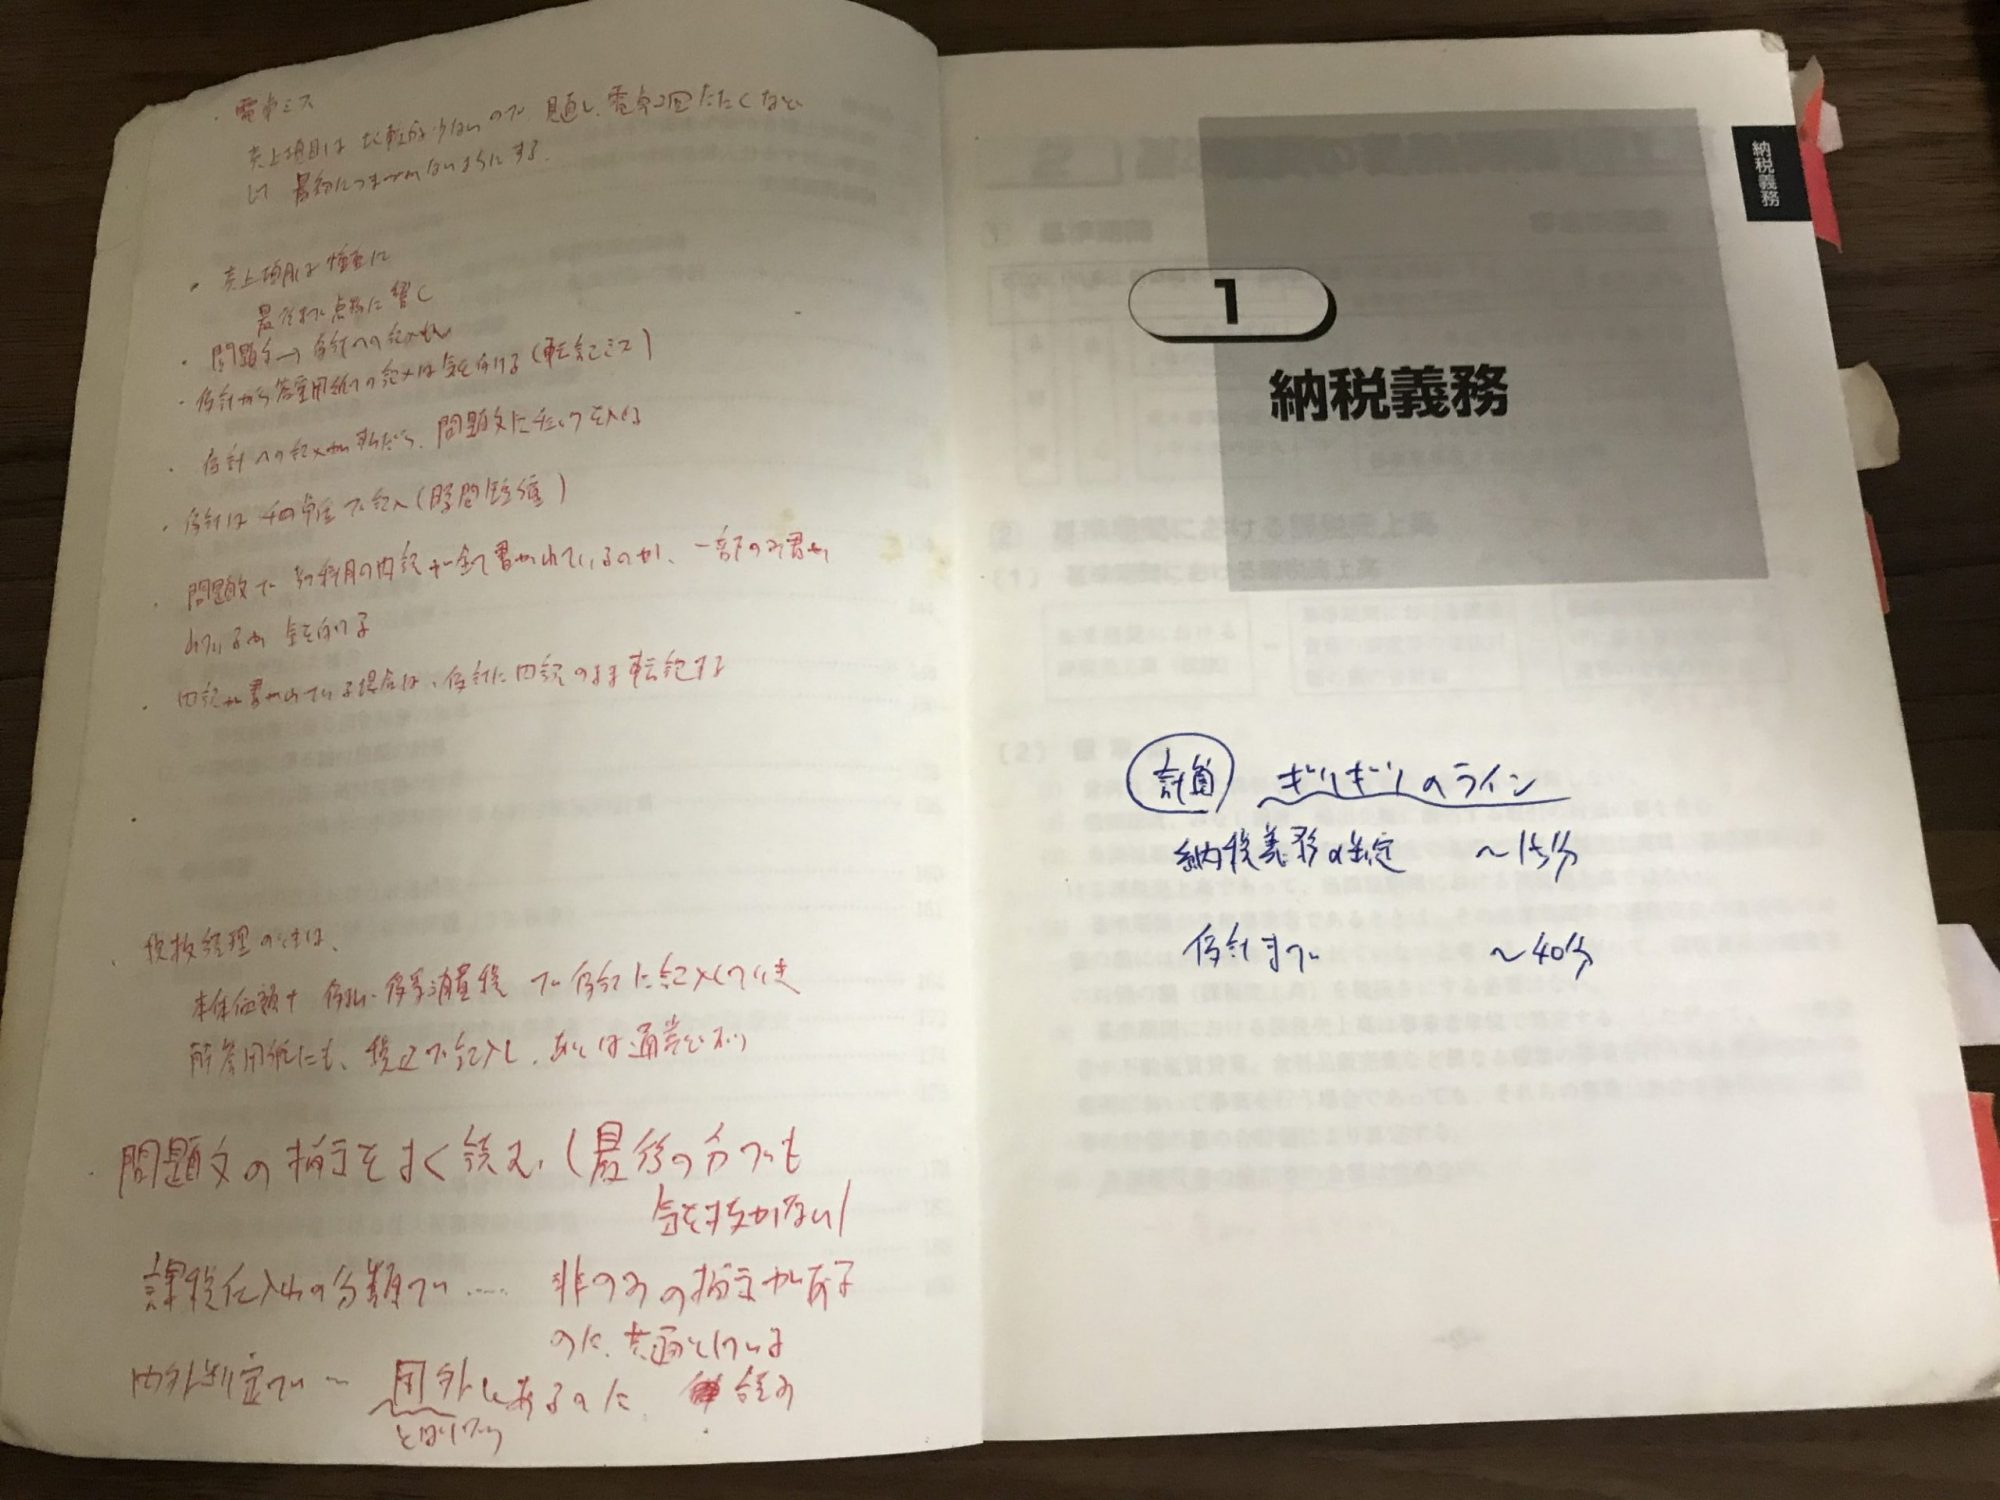 ・電卓ミス
売上項目は比較的少ないので 見直し、電卓2回たたくなど
して 最初につまずかないようにする。
・売上項目は慎重に
最終的に点数に響く
・問題文→仮計への記入もれ
・仮計から答案用紙への記入は気を付ける(転記ミス)
・仮計への記入が終わったら、問題文にチェックを入れる
・仮計は 千円単位で記入(時間短縮)
・問題文で 勘定科目の内訳が全て書かれているのか、一部のみ書か
れているか 気を付ける
・内訳が書かれている場合は、仮計に内訳のまま転記する
・税抜経理のときは、
本体価額+仮払・仮受消費税 で仮計に記入していき
解答用紙にも、税込で記入し、あとは通常どおり
・問題文の指示をよく読む。(最後の1分でも
気を抜かない)
課税仕入れの分類で…… 非のみの指示がある
のに、共通としている
内外判定で〜 国外であるのに、 読み
とばして
納税義務
1
納税義務
計算 ぎりぎりのライン
納税義務の判定 〜15分
仮計まで 〜40分